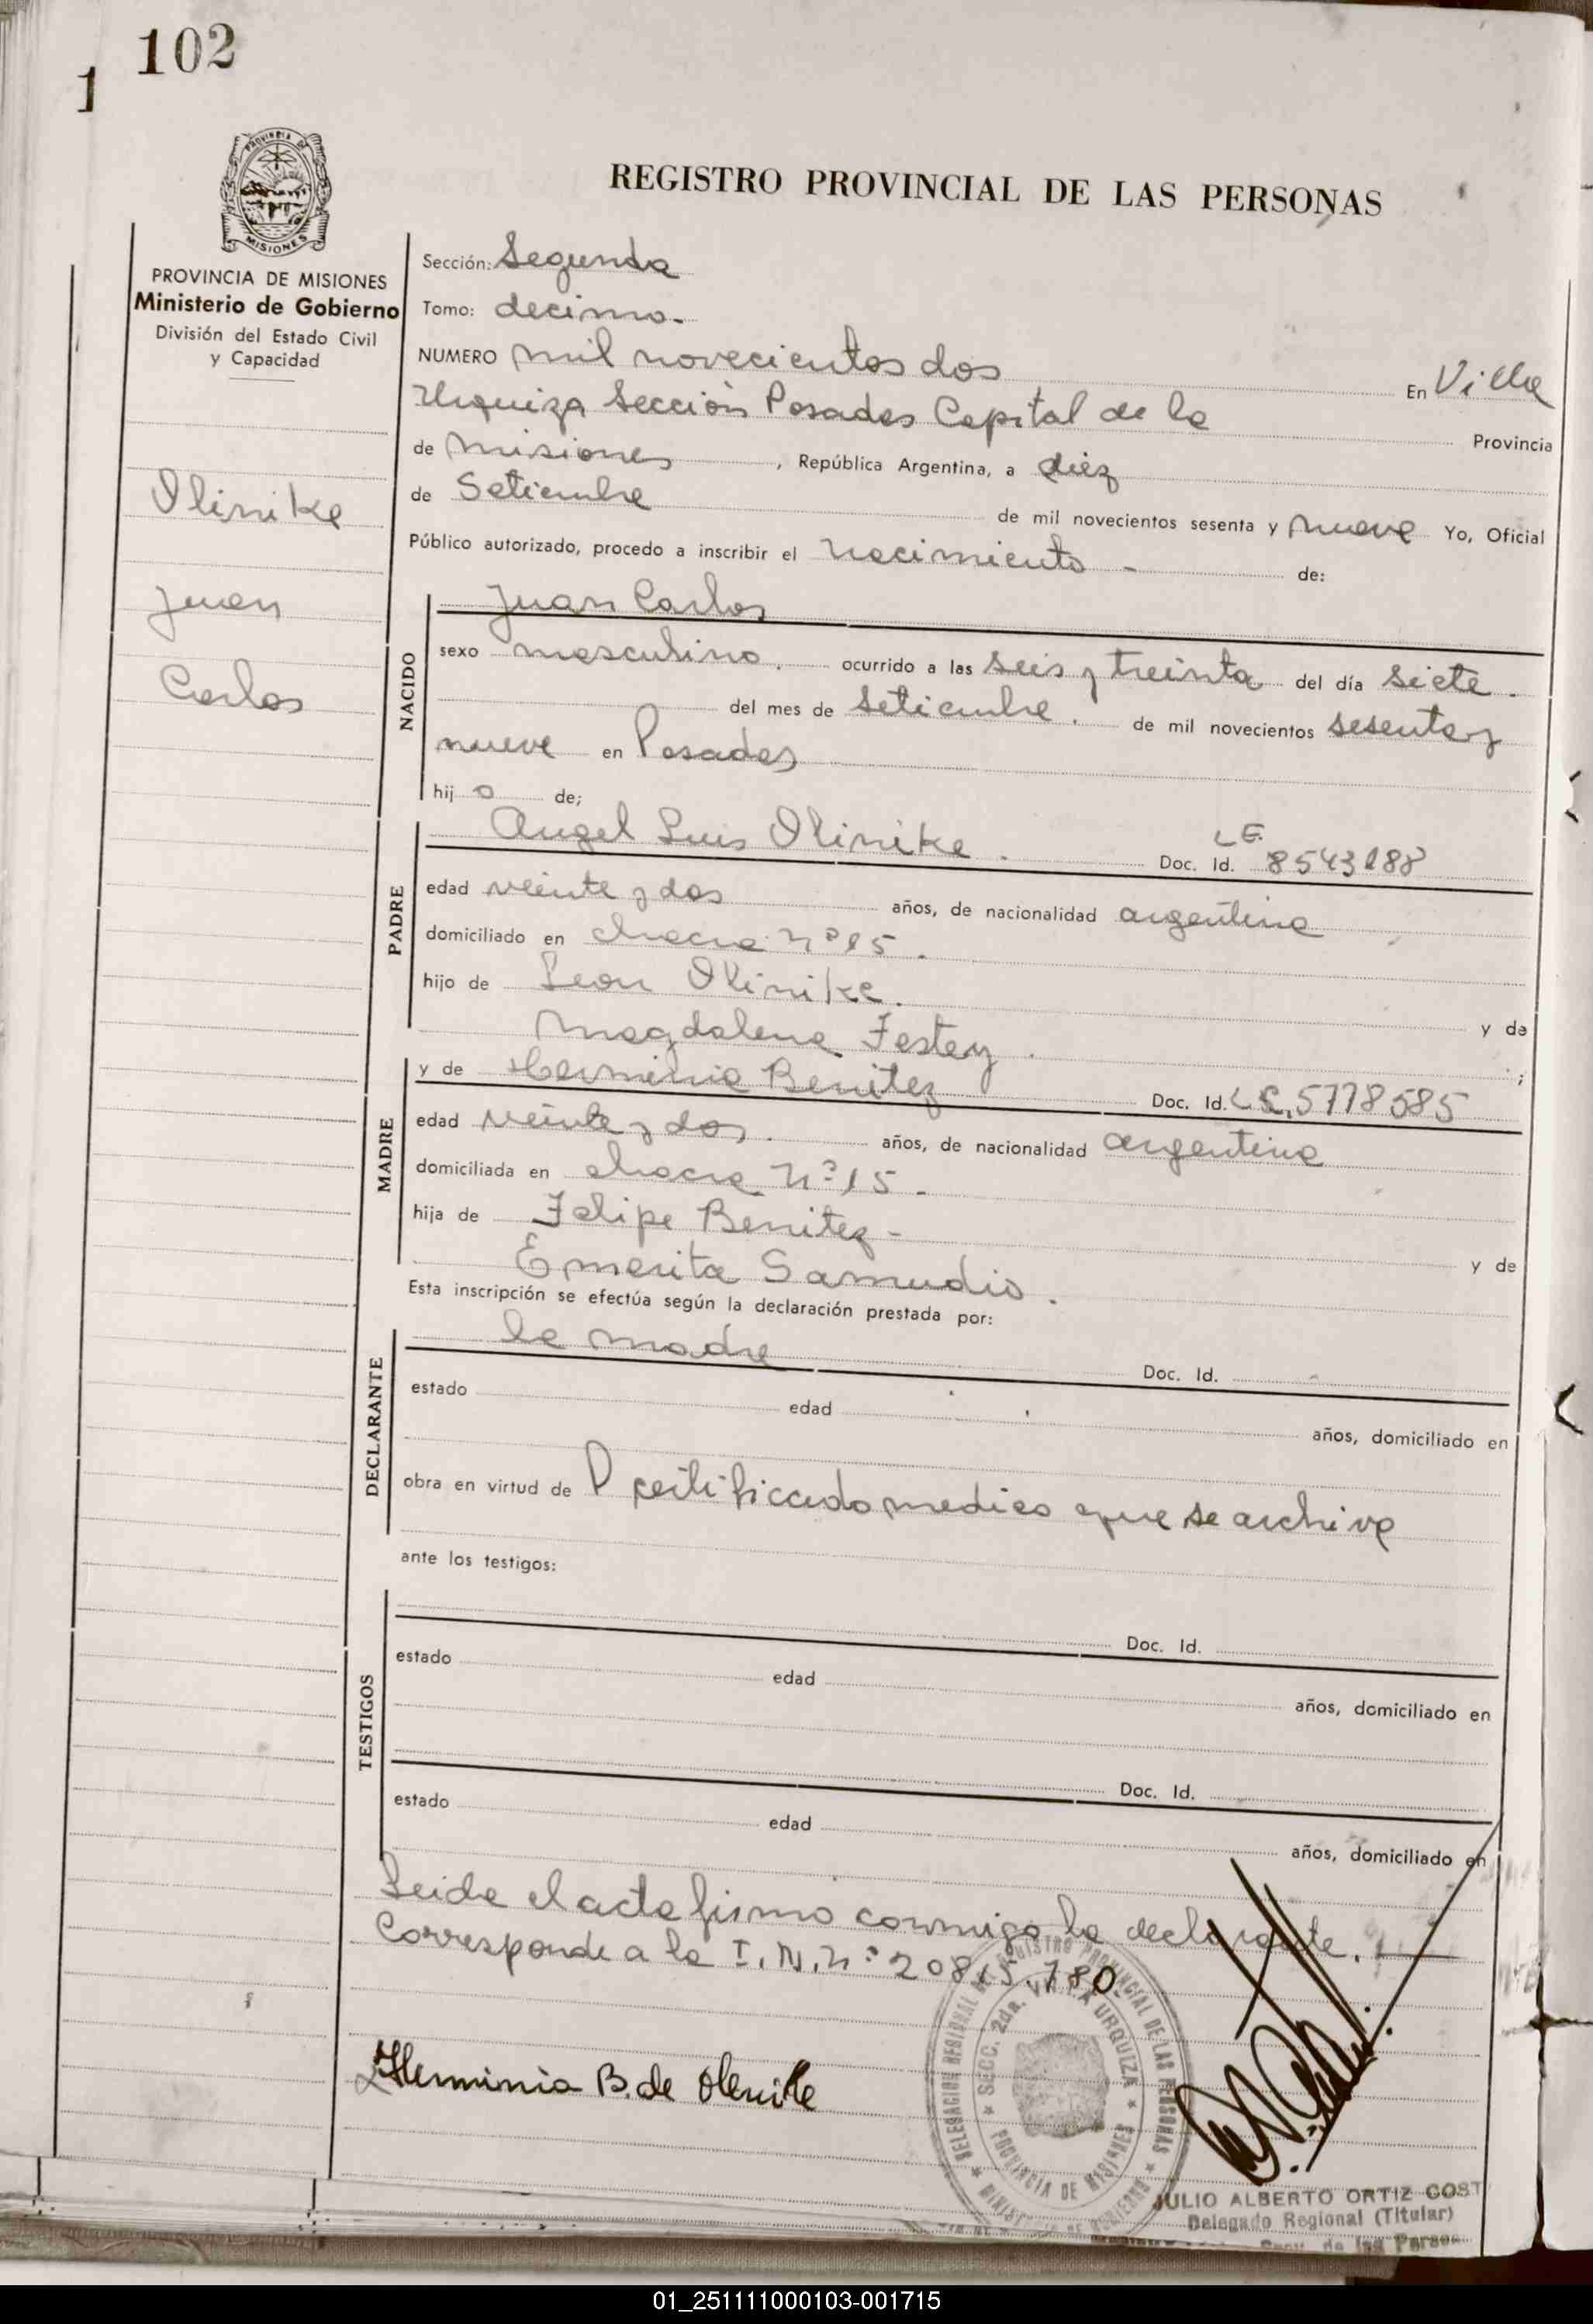 102
1
PROVINCIA DE MISIONES
Ministerio de Gobierno
División del Estado Civil
y Capacidad
Olinike
Juan
Carlos
REGISTRO PROVINCIAL DE LAS PERSONAS
Sección: Segunda
Tomo: decimo.
NUMERO mil novecientos dos En Villa
Urquiza Sección Posadas Capital de la Provincia
de Misiones, República Argentina, a diez
de Setiembre de mil novecientos sesenta y nueve Yo, Oficial
Público autorizado, procedo a inscribir el nacimiento - de:
NACIDO
Juan Carlos
sexo masculino. ocurrido a las seis y treinta del día siete.
del mes de setiembre. de mil novecientos sesenta y
nueve en Posadas
hijo de;
PADRE
Angel Luis Olinike. Doc. Id. L.E. 8543188
edad veinte y dos años, de nacionalidad argentina
domiciliado en chacra nº 15.
hijo de Leon Olinike. y de
Magdalena Festey. ;
MADRE
y de Herminia Benitez Doc. Id. L.C. 5778585
edad veinte y dos. años, de nacionalidad argentina
domiciliada en chacra Nº 15 -
hija de Felipe Benitez - y de
Emerita Samudio.
Esta inscripción se efectúa según la declaración prestada por:
DECLARANTE
la madre Doc. Id.
estado edad años, domiciliado en
obra en virtud de certificado medico que se archiva
ante los testigos:
TESTIGOS
Doc. Id.
estado edad años, domiciliado en
Doc. Id.
estado edad años, domiciliado en
Leida el acta firmo conmigo la declarante.
Corresponde a la I.N.nº 20815.780
Herminia B. de Olenike
REGISTRO PROVINCIAL DE LAS PERSONAS
DELEGACION REGIONAL
SECC. 2da. VILLA URQUIZA
PROVINCIA DE MISIONES
JULIO ALBERTO ORTIZ COST
Delegado Regional (Titular)
01_251111000103-001715